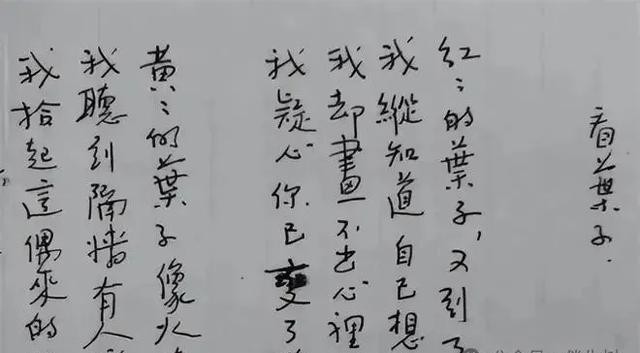 看葉子.
紅々的葉子,又到了
我縱知道自己想
我却畫不出心裡
我疑心你已變了
黃々的葉子像火
我聽到隔墻有人
我拾起這偶來的